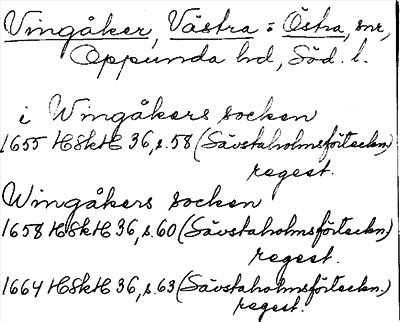 Vingåker, Västra = Östra, snr,
Oppunda hd, Söd. l.
i Wingåkers socken
1655 HSkH 36, s. 58 (Sävstaholmsförteckn.)
regest.
Wingåkers socken
1658 HSkH 36, s. 60 (Sävstaholmsförteckn.)
regest.
1664 HSkH 36, s. 63 (Sävstaholmsförteckn.)
regest.